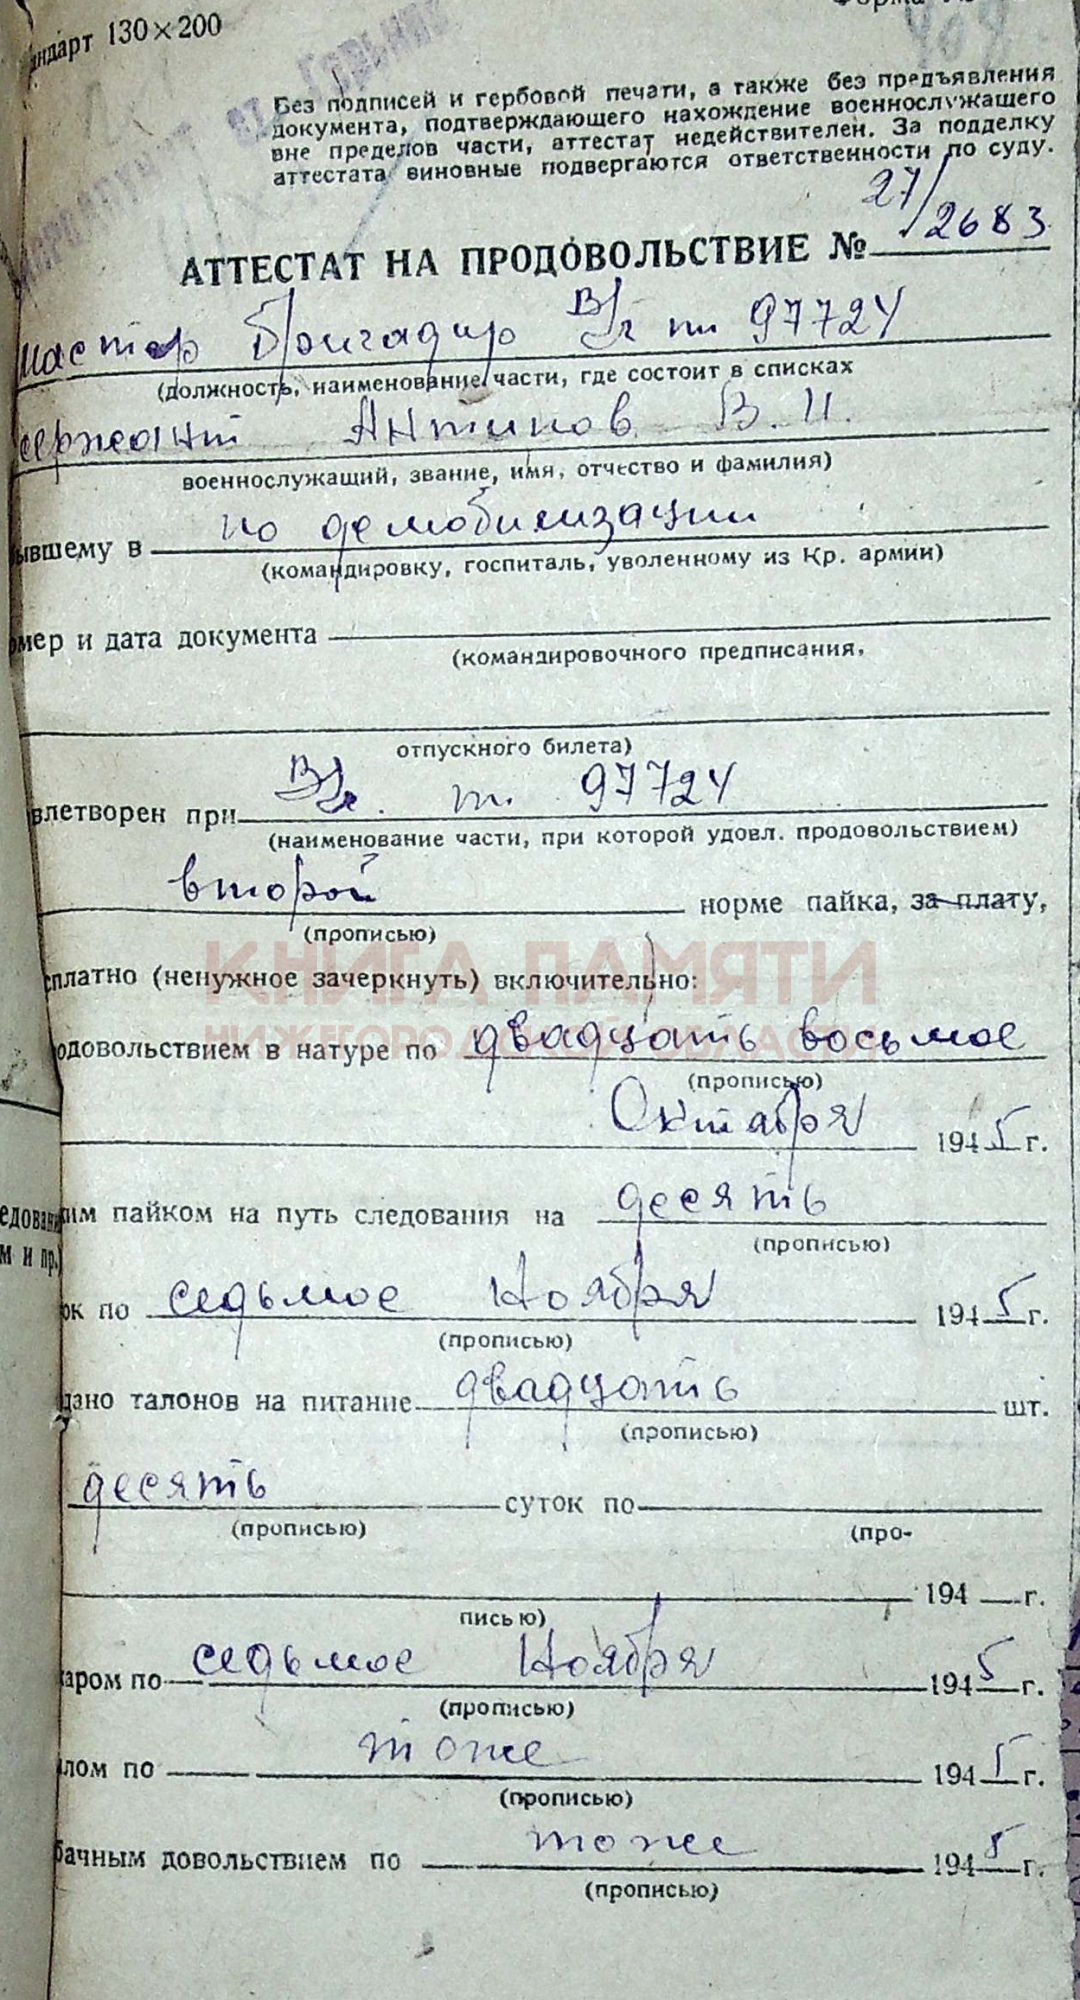 андарт 130×200
Без подписей и гербовой печати, а также без предъявления
документа, подтверждающего нахождение военнослужащего
вне пределов части, аттестат недействителен. За подделку
аттестата виновные подвергаются ответственности по суду.
АТТЕСТАТ НА ПРОДОВОЛЬСТВИЕ № 27/2683
Мастер бригадир В/ч пп 97724
(должность, наименование части, где состоит в списках
сержант Антипов В. И.
военнослужащий, звание, имя, отчество и фамилия)
ывшему в по демобилизации
(командировку, госпиталь, уволенному из Кр. армии)
омер и дата документа
(командировочного предписания,
отпускного билета)
влетворен при В/ч. п. 97724
(наименование части, при которой удовл. продовольствием)
второй норме пайка, за плату,
(прописью)
КНИГА ПАМЯТИ
сплатно (ненужное зачеркнуть) включительно:
НИЖЕГОРОДСКОЙ ОБЛАСТИ
одовольствием в натуре по двадцать восьмое
(прописью)
Октября 1945 г.
едован
ким пайком на путь следования на десять
(прописью)
м и пр.)
ок по седьмое Ноября 1945 г.
(прописью)
дано талонов на питание двадцать шт.
(прописью)
десять суток по
(прописью) (про-
194 г.
писью)
харом по седьмое Ноября 1945 г.
(прописью)
лом по тоже 1945 г.
(прописью)
бачным довольствием по тоже 1945 г.
(прописью)